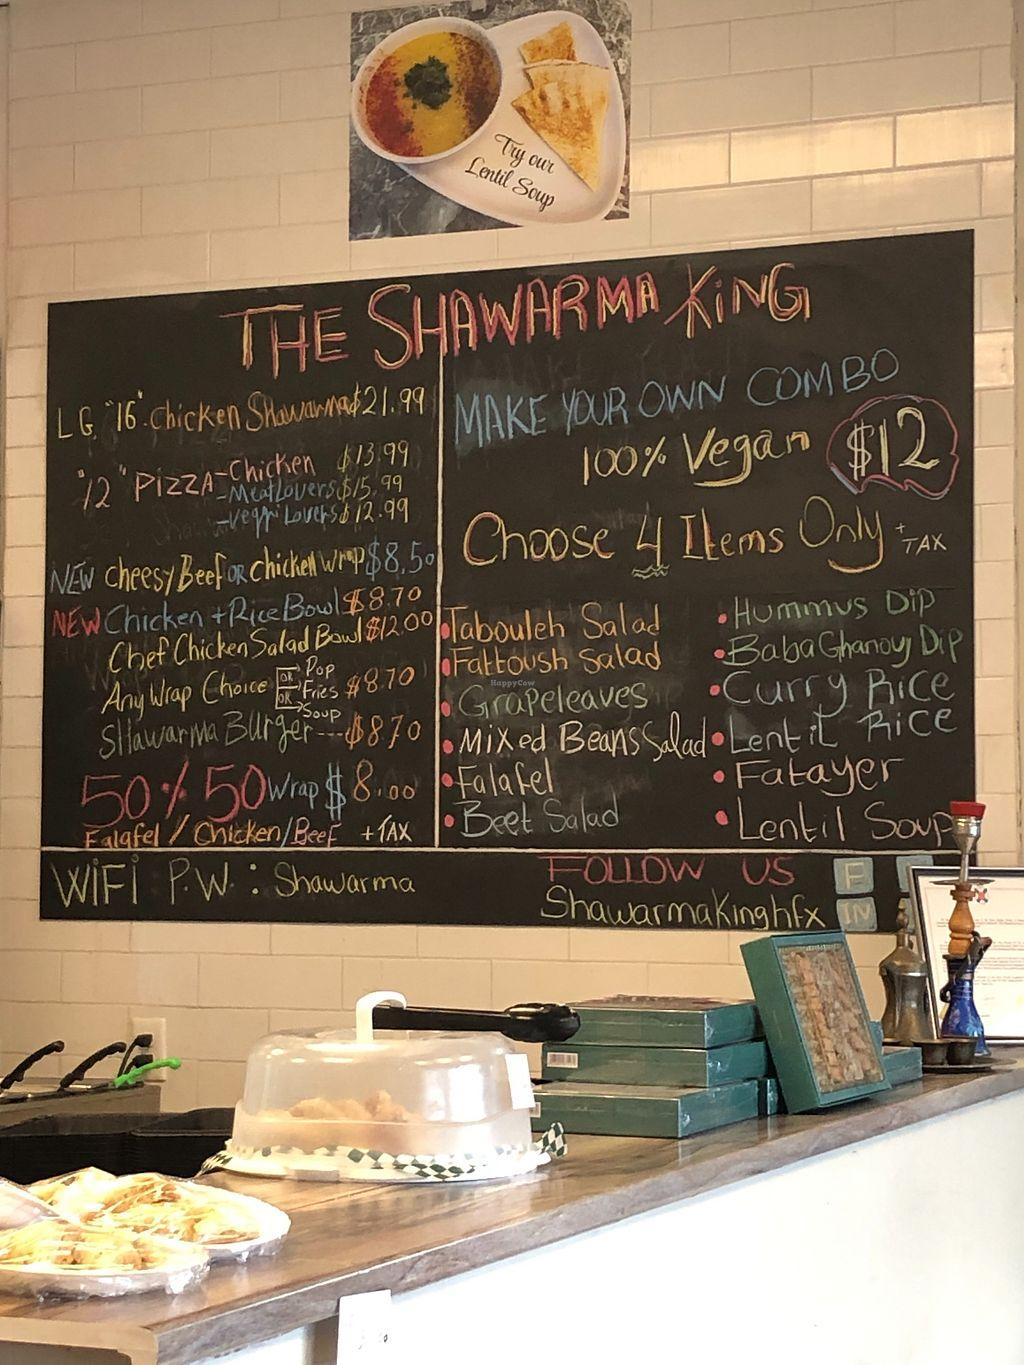 Try our
Lentil Soup
THE SHAWARMA KiNG
LG "16" Chicken Shawarma $21.99
"12" PIZZA - Chicken $13.99
- Meat Lovers $15.99
- Veggi Lovers $12.99
NEW Cheesy Beef OR Chicken Wrap $8.50
NEW Chicken + Rice Bowl $8.70
Chef Chicken Salad Bowl $12.00
Any Wrap Choice OR OR Pop Fries Soup $8.70
SHawarma Burger --- $8.70
50% 50 Wrap $8.00
Falafel / Chicken / Beef + TAX
MAKE YOUR OWN COMBO
100% Vegan $12
Choose 4 Items Only + TAX
Tabouleh Salad
Fattoush Salad
Grapeleaves
Mixed Beans Salad
Falafel
Beet Salad
Hummus Dip
Baba Ghanouj Dip
Curry Rice
Lentil Rice
Fatayer
Lentil Soup
WiFi P.W : Shawarma
FOLLOW US F
ShawarmaKinghfx IN
HappyCow